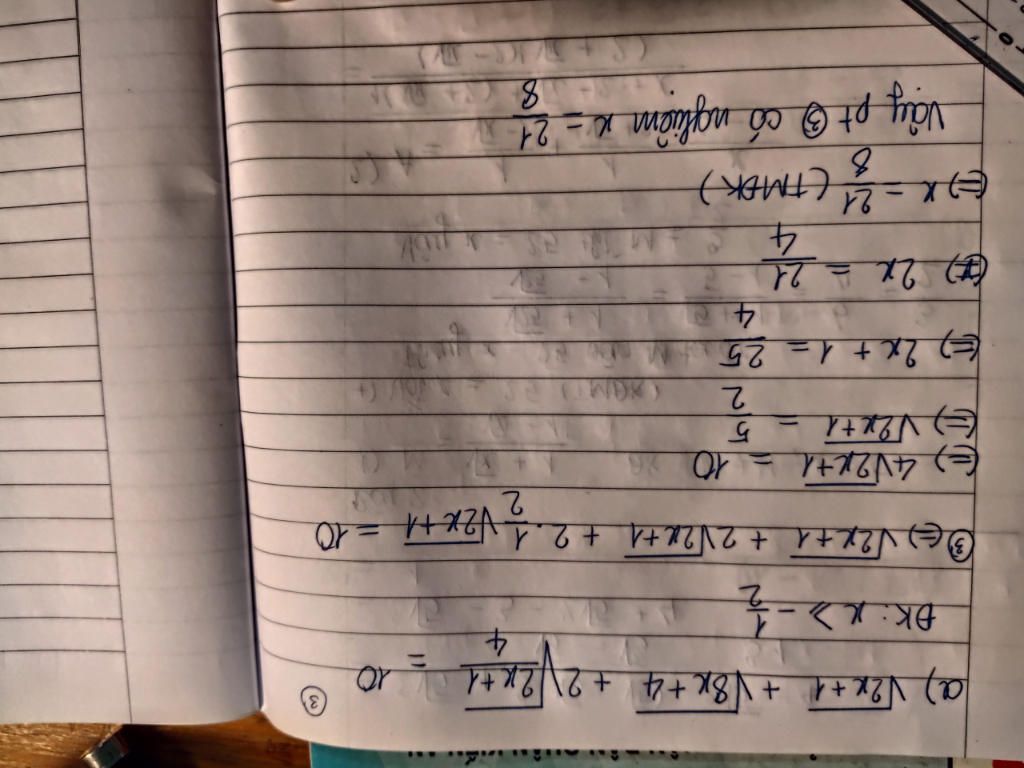 a) √2x+1 + √8x+4 + 2√(2x+1)/4 = 10 ③
ĐK: x ≥ -1/2
③ (=) √2x+1 + 2√2x+1 + 2.1/2√2x+1 = 10
(=) 4√2x+1 = 10
(=) √2x+1 = 5/2
(=) 2x + 1 = 25/4
(=) 2x = 21/4
(=) x = 21/8 (TMĐK)
Vậy pt ③ có nghiệm x = 21/8